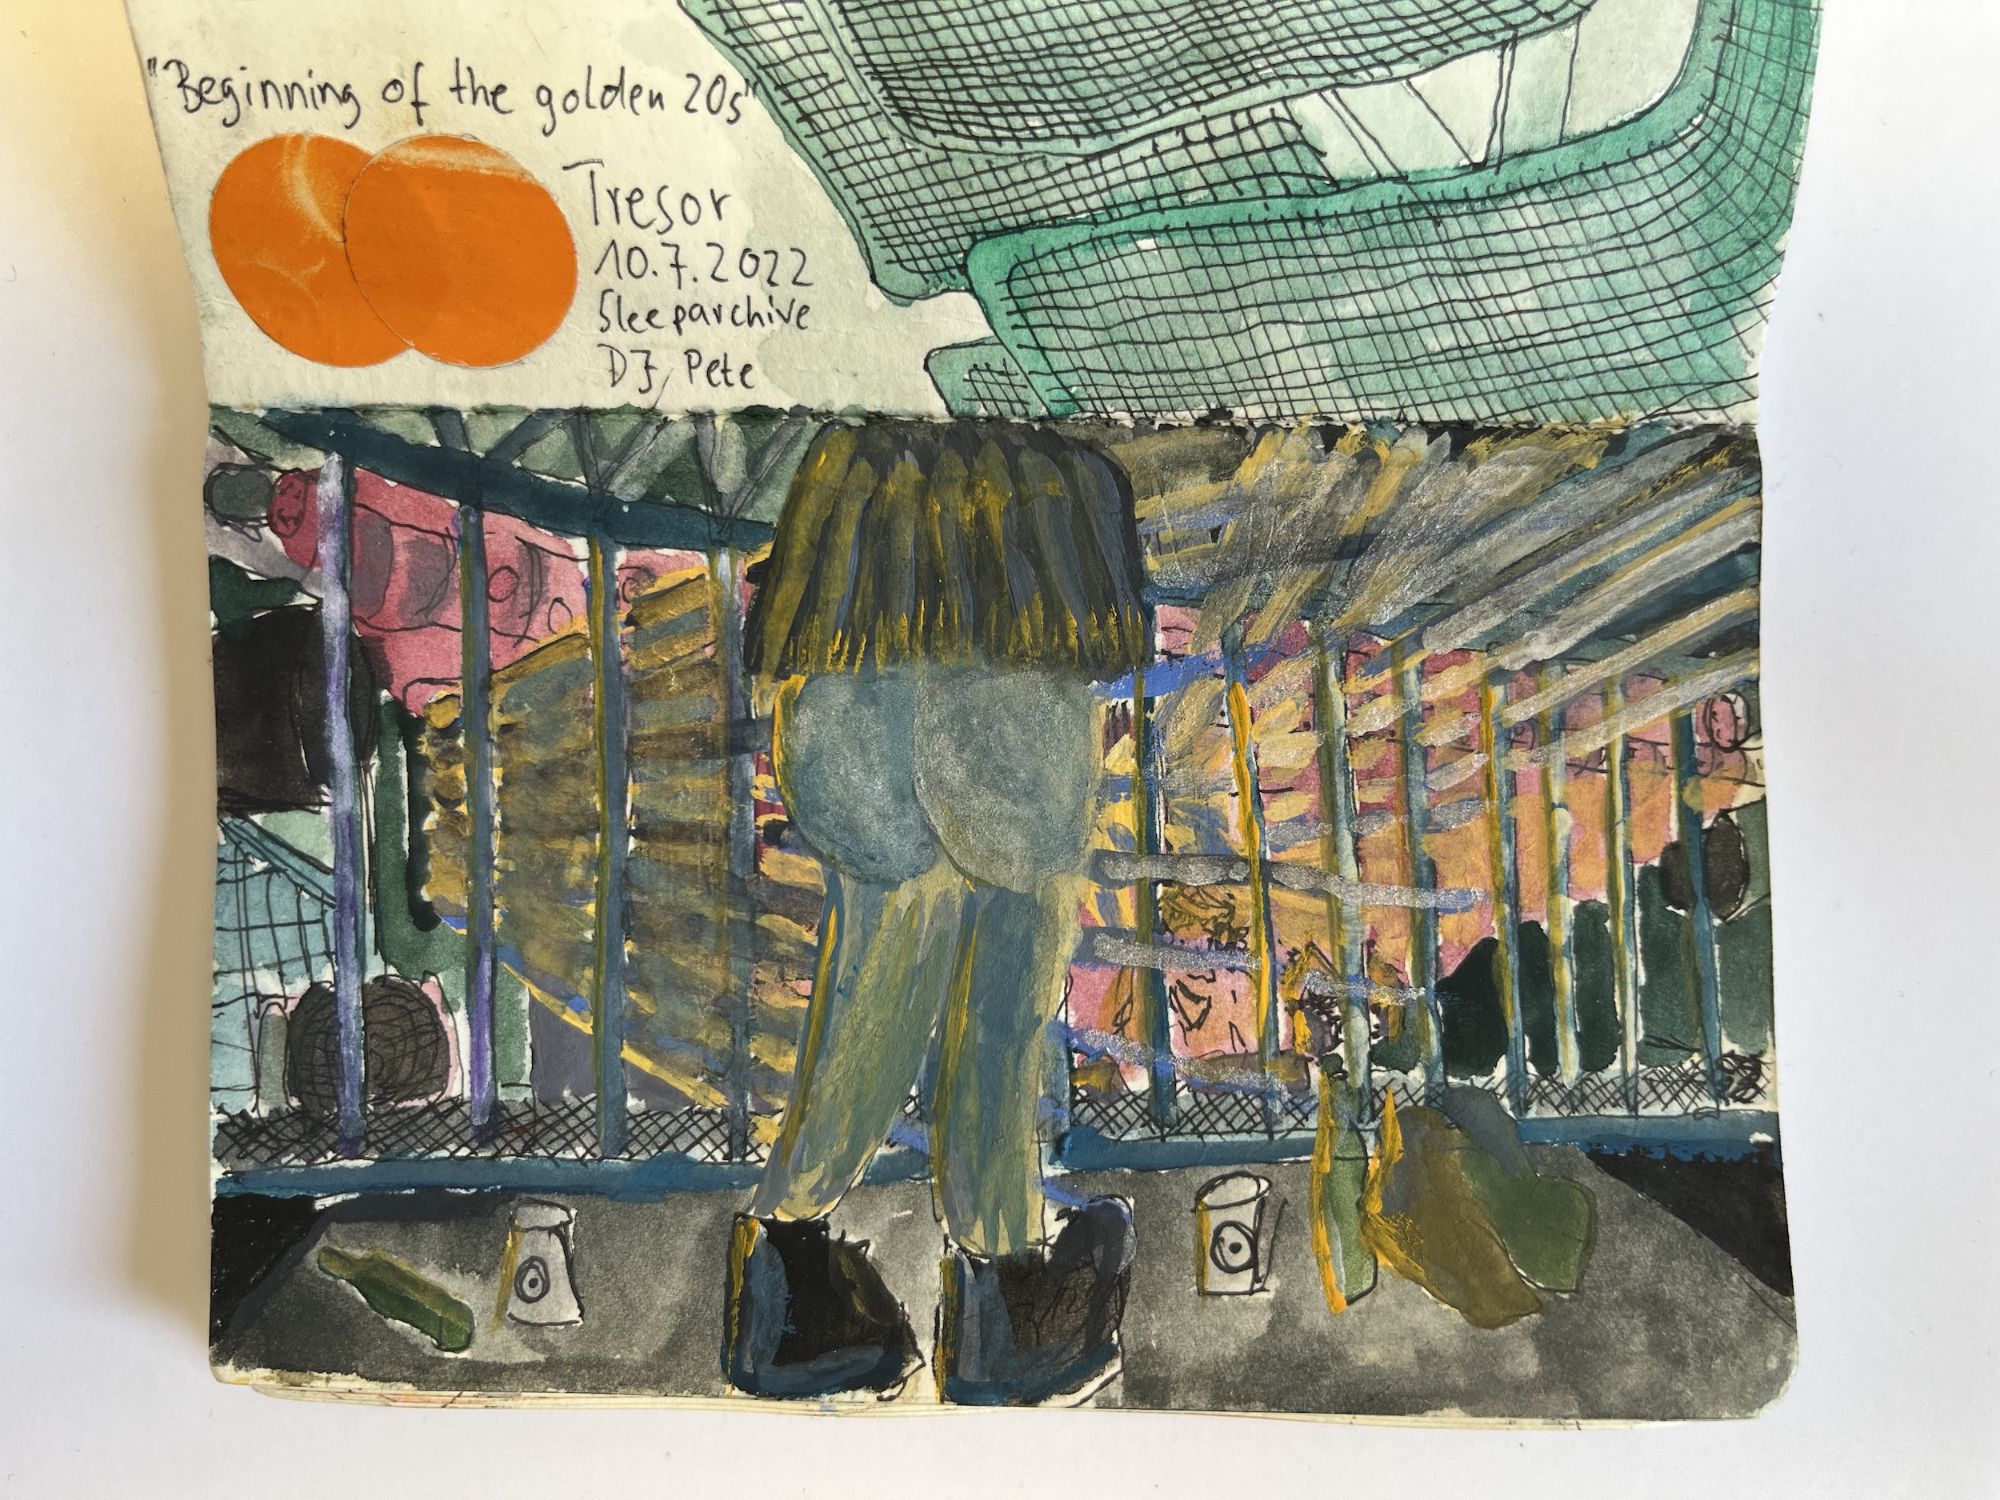 "Beginning of the golden 20s"
Tresor
10.7.2022
Sleeparchive
DJ Pete